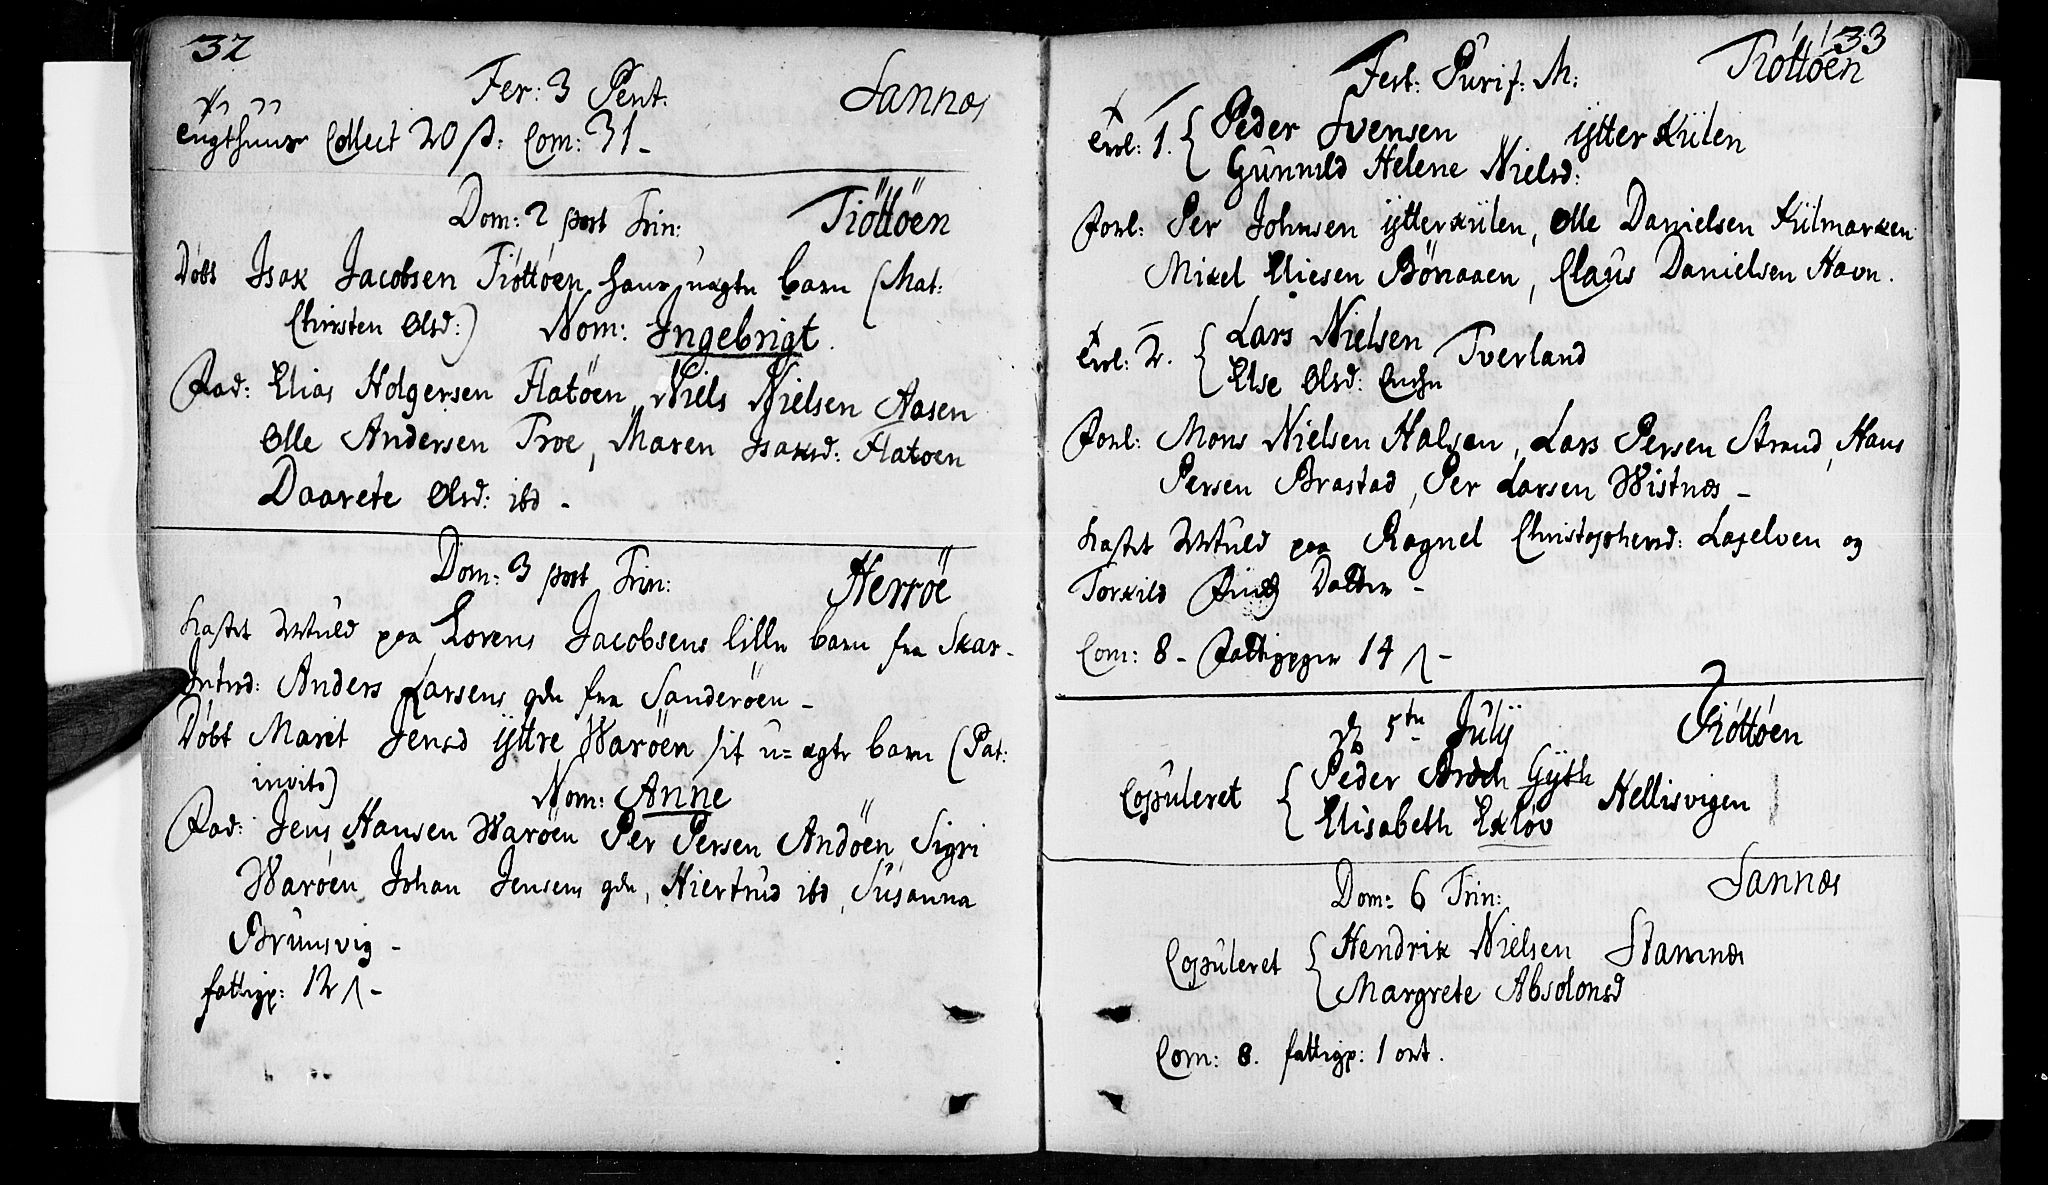 32
Fer: 3 Pent: Sannæs
Tugthuus Collect 20 s: Com: 31 -
Dom: 2 post Trin: Tiøttøen
Døbt Isak Jacobsen Tiøttøen hans uægte barn (Mat:
Christen Olsd:) Nom: Ingebrigt.
Fad: Elias Holgersen Flatøen, Niels Nielsen Aasen
Olle Andersen Troe, Maren Isaksd: Flatøen
Daarete Olsd: ibd -
Dom: 3 post Trin: Herrøe
kastet Muld paa Lorens Jacobsens lille barn fra Skar-
Introd: Anders Larsens qde fra Sanderøen -
Døbt Marit Jensd ÿttre Warøen sit u=ægte barn (Pat:
invito) Nom: Anne
Fad: Jens Hansen Warøen Per Persen Andøen, Sigri
Warøen, Johan Jensens qde, Hiertrud ibd, Susanna
Brunsvig -
fattigp: 12 s -
33
Fest: Purif: M: Tiøttøen
Trol: 1. { Peder Svensen ÿtter Kulen
Gunnild Helene Nielsd:
Forl: Per Johnsen ÿtterkulen, Olle Danielsen Kulmarken
Mikel Eliesen Bønaaen, Claus Danielsen Havn.
Trol: 2. { Lars Nielsen Tverland
Else Olsd: Enche
Forl: Mons Nielsen Halsen, Lars Persen Strand, Hans
Persen Brastad, Per Larsen Wistnæs -
kastet Muld paa Ragnel Christophersd: Laxelven og
Torkild Datter -
Com: 8 - Fattigpger 14 s -
d 5te Julÿ Tiøttøen
Copuleret { Peder Broch Gÿth Hellisvigen
Elisabeth Exløv
Dom: 6 Trin: Sannæs
Copuleret { Hendrik Nielsen Stamnæs
Margrete Absolonsd
Com: 8. fattigp: 1 ort.